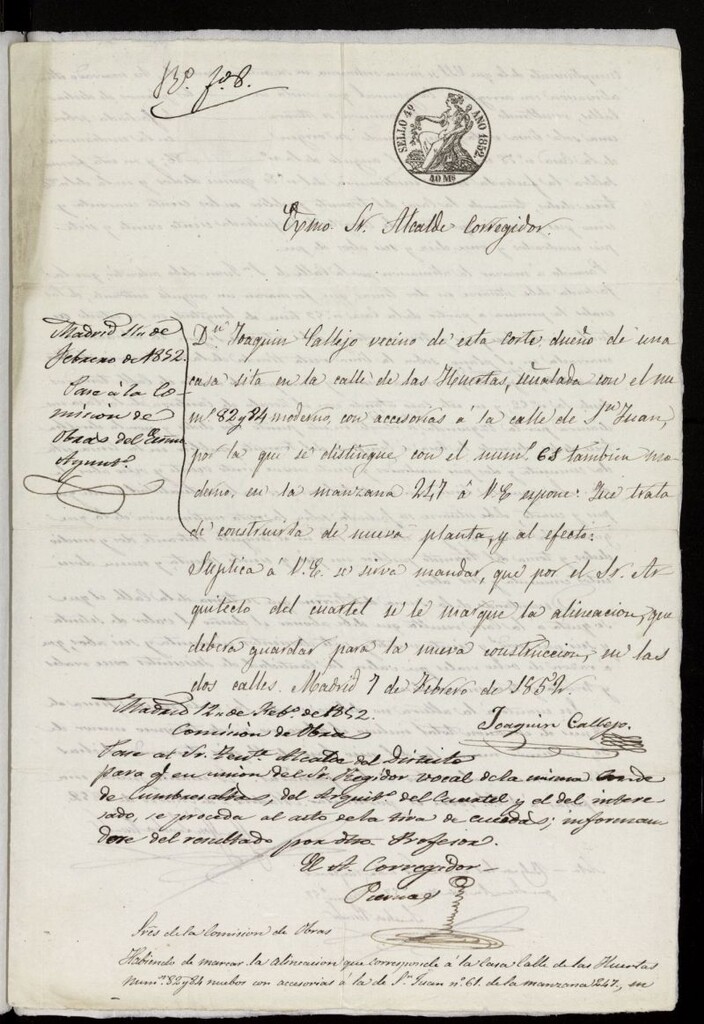 SELLO 4º AÑO 1852.
40 Ms
Exmo. Sr. Alcalde Corregidor.
Madrid 11 de
Febrero de 1852.
Pase á la Co-
mision de
Obras del Excmo.
Ayuntº.
Dn Joaquin Callejo vecino de esta corte, dueño de una
casa sita en la calle de las Huertas, señalada con el nu-
mº. 82 y 84 moderno, con accesorias á la calle de Sn Juan,
por la que se distingue con el numº. 61 tambien mo-
derno, en la manzana 247 á V.E. espone: Que trata
de construirla de nueva planta, y al efecto:
Suplica á V.E. se sirva mandar, que por el Sr. Ar-
quitecto del cuartel se le marque la alineacion, que
deberá guardar para la nueva construccion, en las
dos calles. Madrid 7 de Febrero de 1852.
Joaquin Callejo.
Madrid 12 de Febº. de 1852.
Comision de Obras
Pase al Sr. Tente. Alcalde del Distrito
para q. en union del Sr. Regidor vocal de la misma Conde
de Cumbres altas, del Arquitº. del Cuartel y el del intere-
sado, se proceda al acto de la tira de cuerdas; informan-
dose del resultado por dho. Profesor.
El A. Corregidor
Sres de la Comision de Obras
Habiendo de marcar la alineacion que corresponde á la Casa Calle de las Huertas
numº. 82 y 84 nuebos con accesorias á la de Sn Juan nº 61. de la manzana 247, en